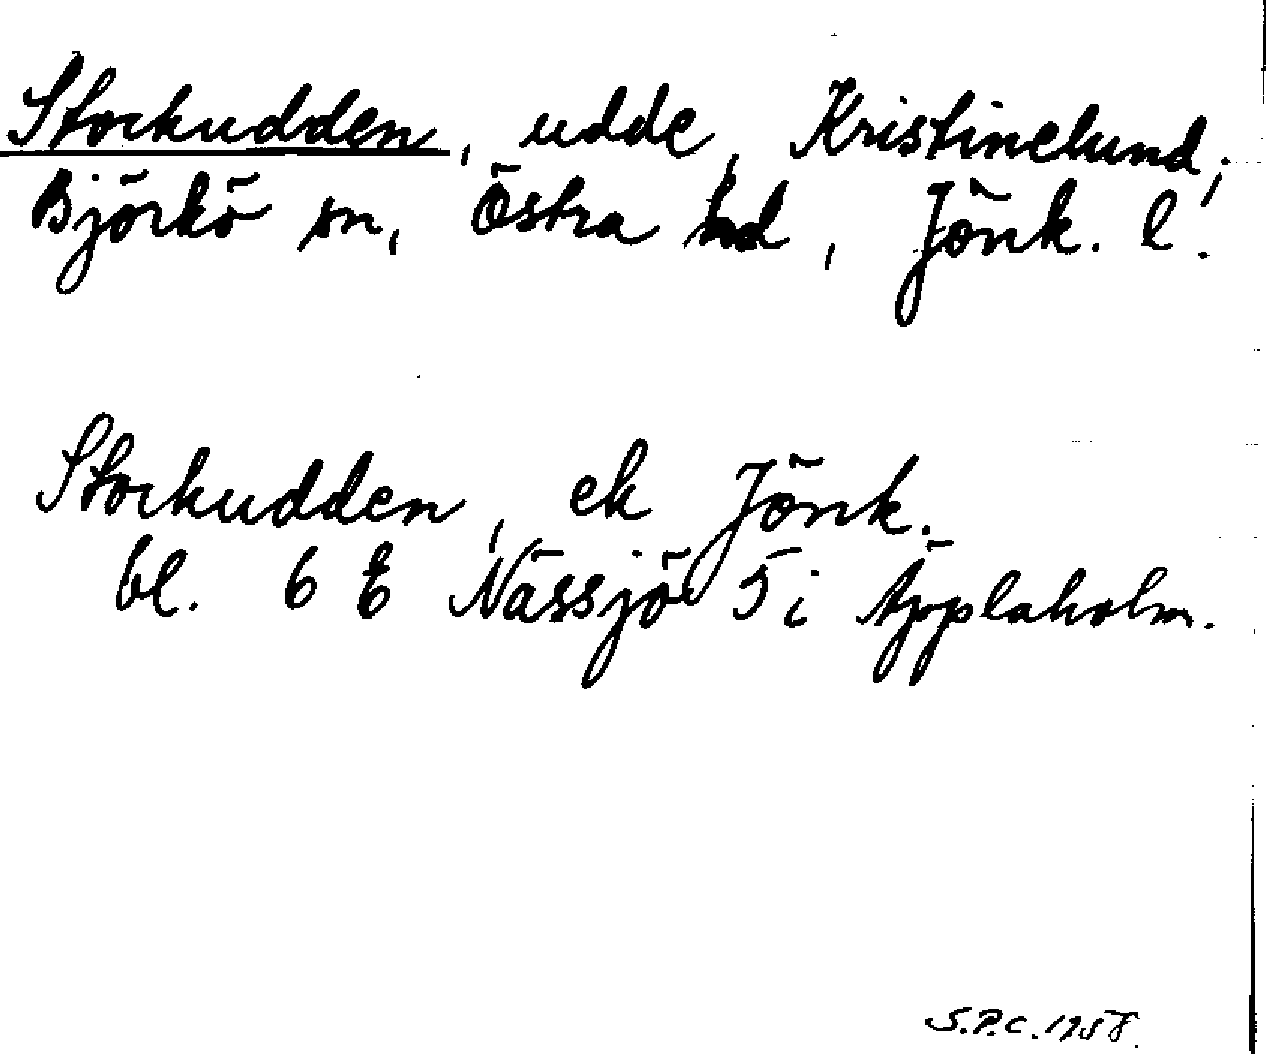 Stockudden, udde, Kristinelund,
Björkö sn, Östra hd, Jönk. l.
Stockudden, ek Jönk.
bl. 6 E Nässjö 5 i Äpplaholm.
S.P.C. 1958.